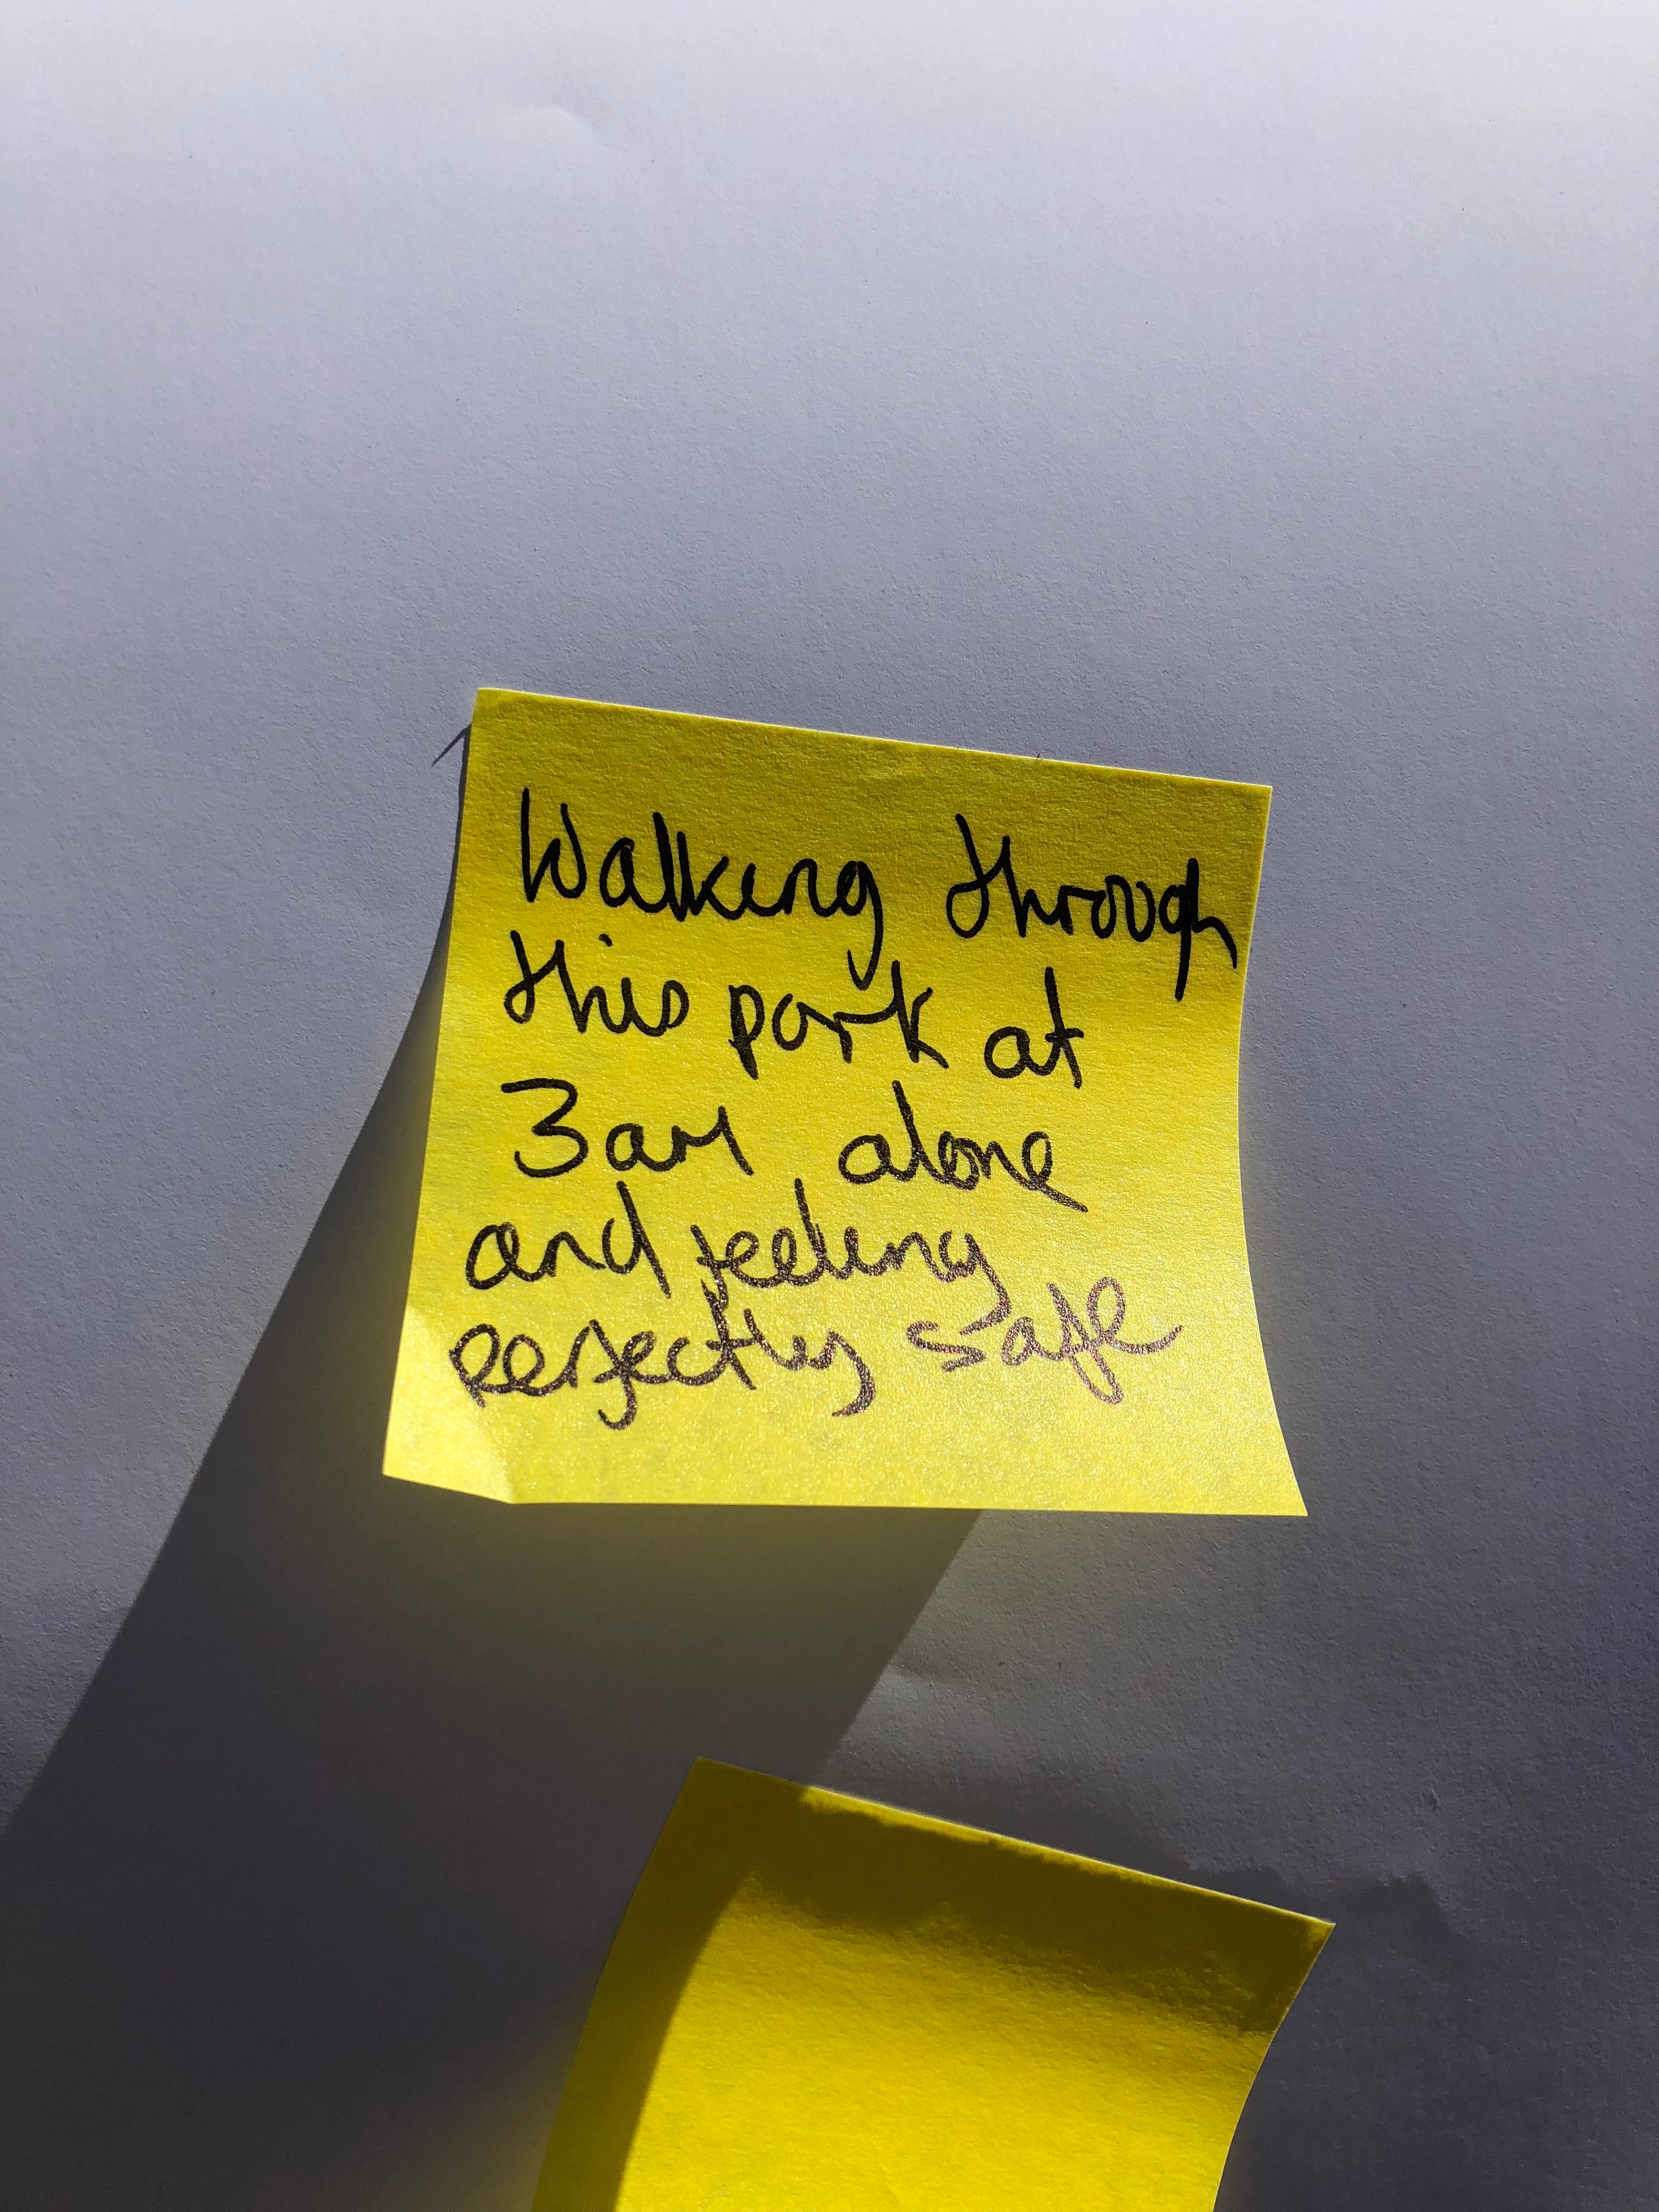 Walking through
this park at
3am alone
and feeling
perfectly safe